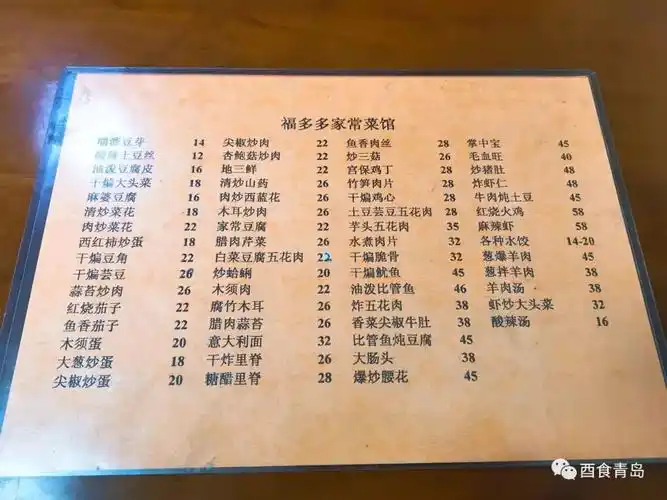 福多多家常菜馆
豆芽 14 尖椒炒肉 22 鱼香肉丝 28 掌中宝 45
土豆丝 12 杏鲍菇炒肉 22 炒三菇 26 毛血旺 40
油泼豆腐皮 16 地三鲜 22 宫保鸡丁 28 炒猪肚 48
干煸大头菜 18 清炒山药 26 竹笋肉片 28 炸虾仁 48
麻婆豆腐 16 肉炒西蓝花 26 干煸鸡心 28 牛肉炖土豆 45
清炒菜花 18 木耳炒肉 26 土豆芸豆五花肉 28 红烧火鸡 58
肉炒菜花 22 家常豆腐 22 芋头五花肉 35 麻辣虾 58
西红柿炒蛋 18 腊肉芹菜 26 水煮肉片 32 各种水饺 14-20
干煸豆角 22 白菜豆腐五花肉 22 干煸脆骨 32 葱爆羊肉 45
干煸芸豆 26 炒蛤蜊 20 干煸鱿鱼 45 葱拌羊肉 38
蒜苔炒肉 26 木须肉 22 油泼比管鱼 46 羊肉汤 38
红烧茄子 22 腐竹木耳 26 炸五花肉 38 虾炒大头菜 32
鱼香茄子 22 腊肉蒜苔 26 香菜尖椒牛肚 38 酸辣汤 16
木须蛋 20 意大利面 32 比管鱼炖豆腐 45
大葱炒蛋 18 干炸里脊 26 大肠头 38
尖椒炒蛋 20 糖醋里脊 28 爆炒腰花 45
酉食青岛